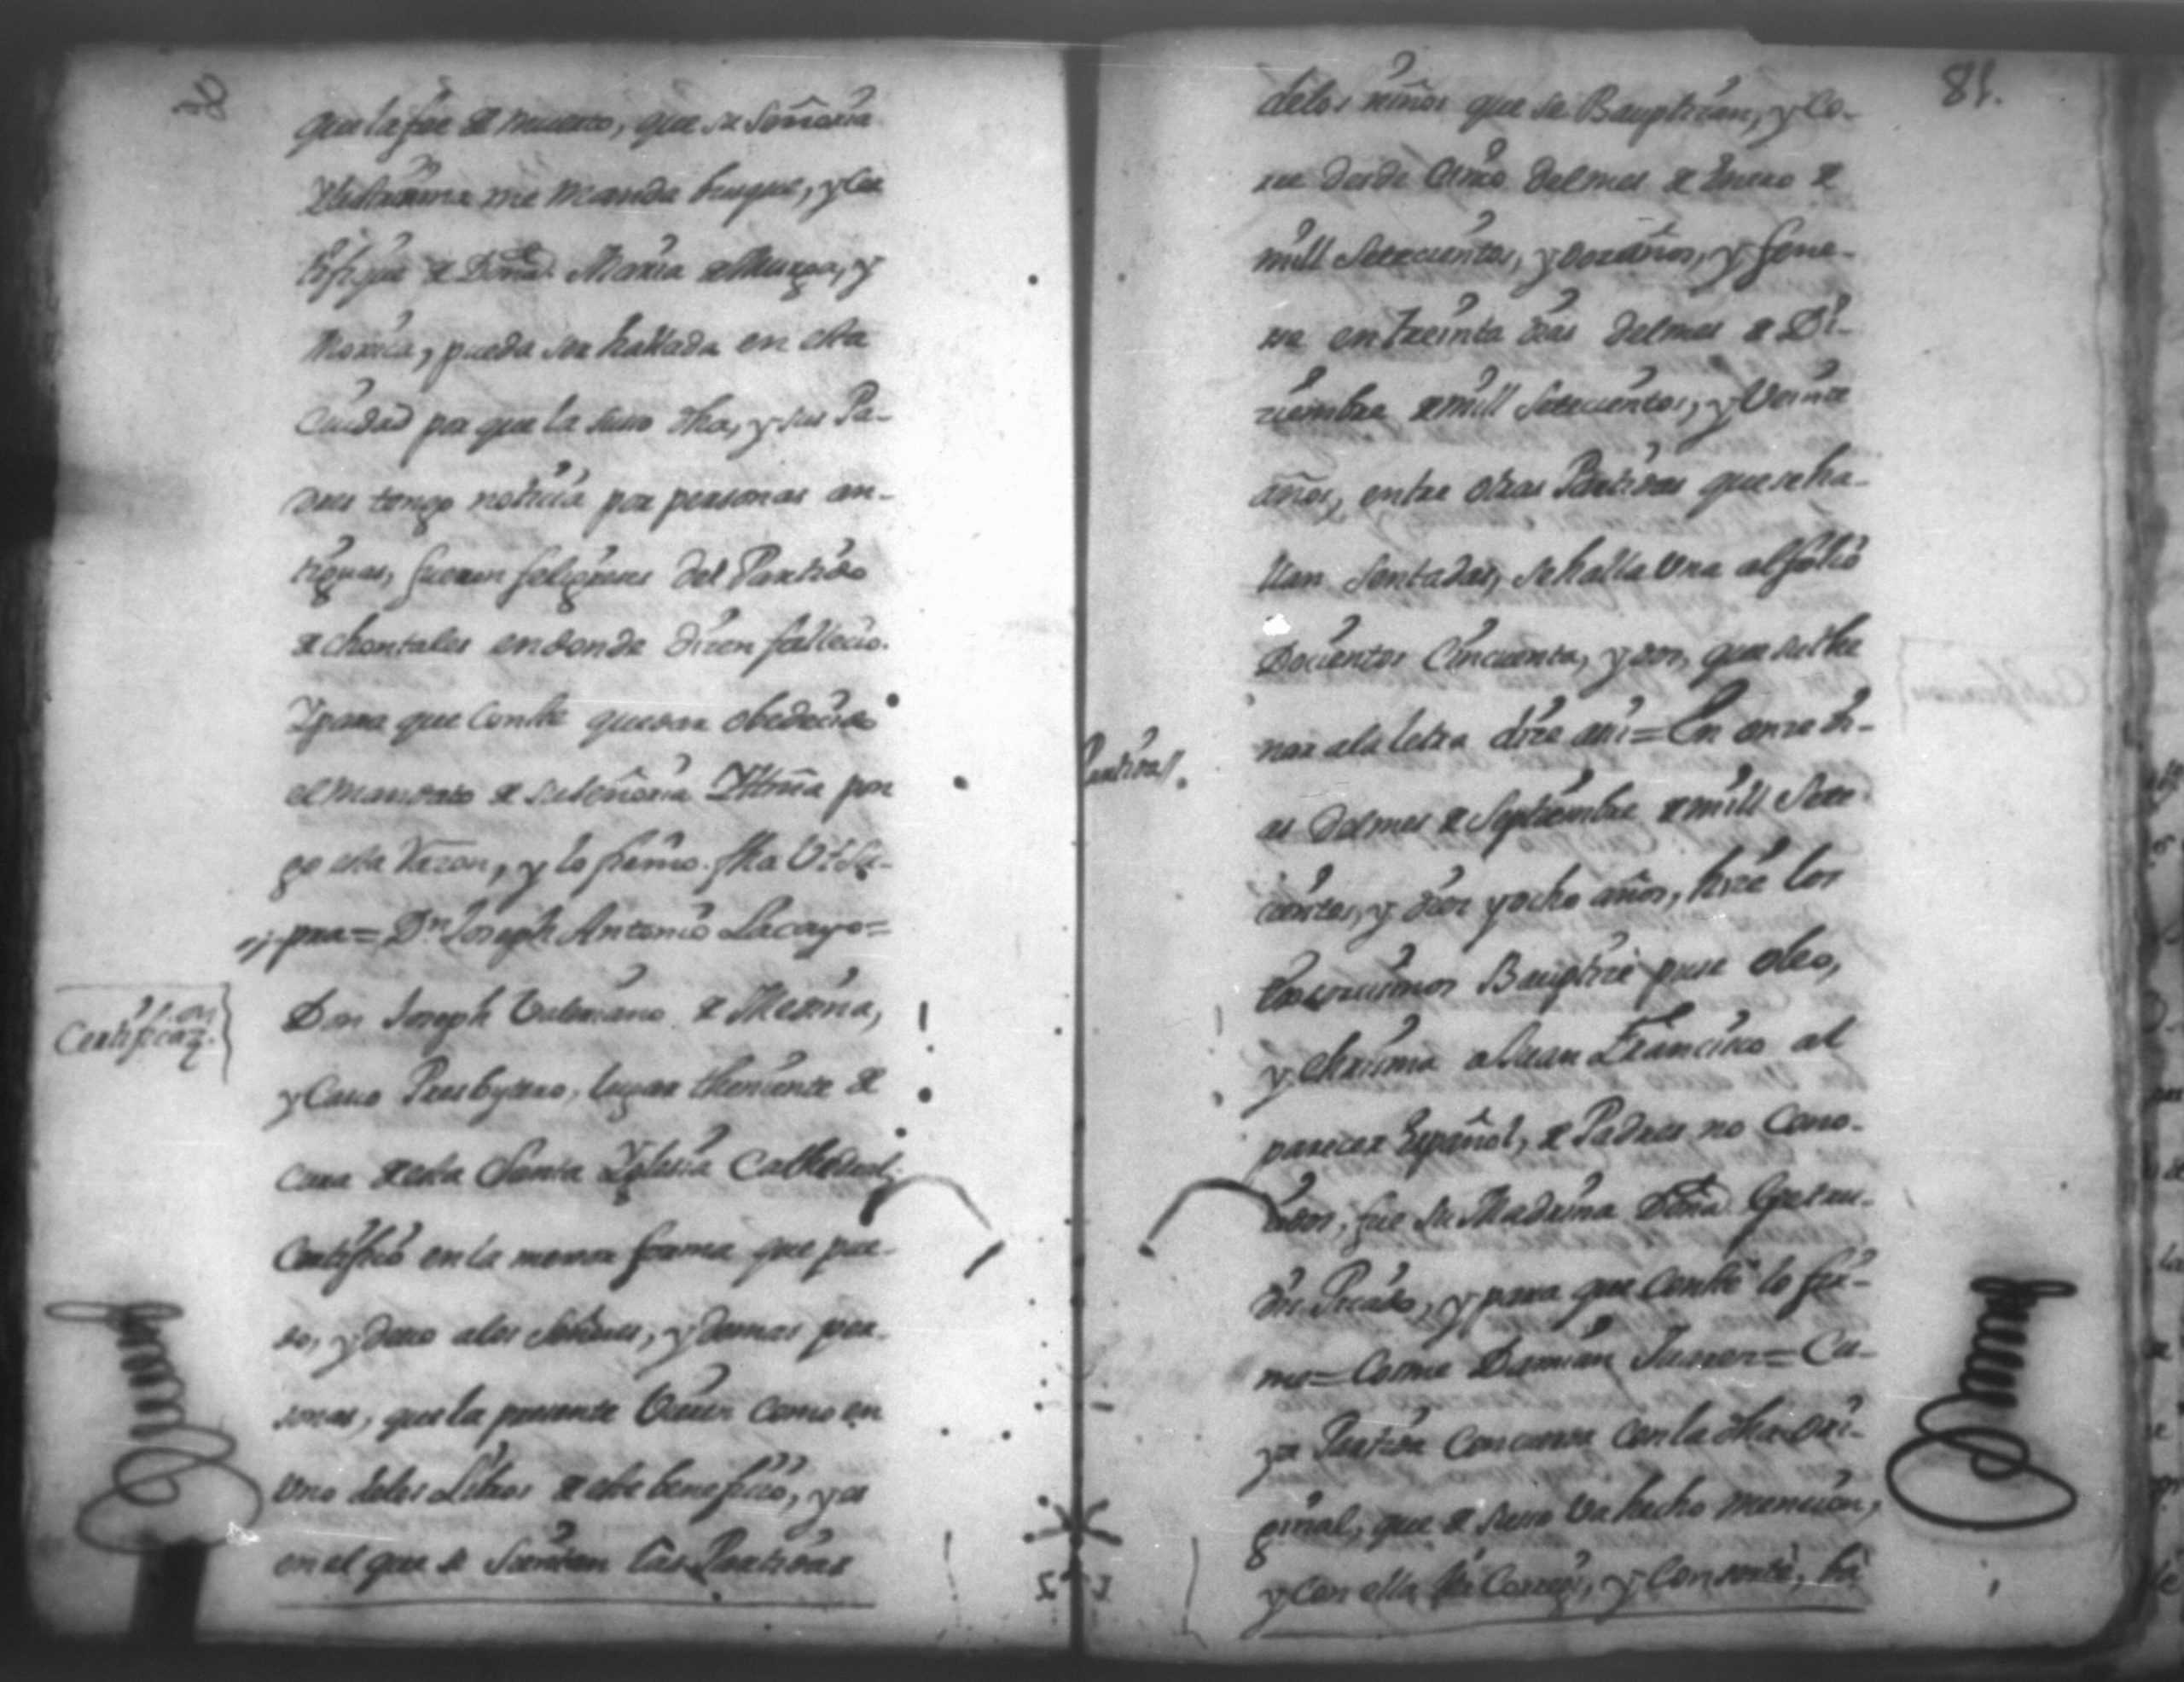 que la fee de muerto, que su Señoria
Yllustrisima me manda busque, y cer
tifique de Doña Maria de Murga, y
Moxica, pueda ser hallada en esta
Ciudad por que la suso dha, y sus Pa-
dres tengo noticia por personas an-
tiguas, fueron feligreses del Partido
de chontales en donde dizen fallecio.
Y para que Conste quedar obedecido
el mandato de su Señoria Yttma pon
go esta Razon, y lo firmo. fha Vt Su-
pra = Dn Joseph Antonio Lacayo =
Certificazon
Don Joseph Valeriano de Medina,
y Casco Presbytero, lugar theniente de
Cura de esta Santa Yglesia Cathedral
Certifico en la mexor forma que pue-
do, y devo a los Señores, y demas per-
sonas, que la presente Vieren Como en
Uno delos Libros de este beneficio, y es
en el que se Sientan las Partidas
81.
delos niños que se Bauptizan, y Co-
rre desde Cinco del mes de Enero de
mill Setecientos, y doze años, y fene-
se en treinta dias del mes de Di-
ziembre de mill Setecientos, y Veinte
años, entre otras Partidas que se ha-
llan Sentadas, se halla Una al folio
Docientos Cinquenta, y dos, que su the
nor ala letra dize asi = En onze di-
Partida
as del mes de Septiembre de mill Sete
cientos, y diez y ocho años, hize los
Exorcismos Bauptize puse oleo,
y chrisma a Juan Francisco al
parecer Español, de Padres no Cono-
cidos, fue su Madrina Doña Getru-
dis Picado, y para que Conste lo fir-
mo = Cosme Damian Juarez = Cu-
ya Partida Concuerda Con la dha ori-
ginal, que de suso Va hecho mencion,
y Con ella la Correxi, y Conserte, bà